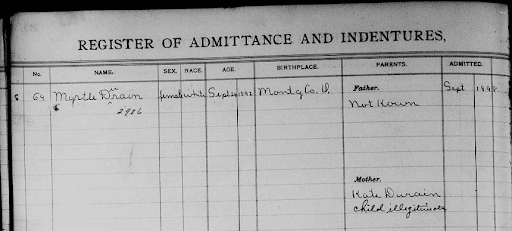 REGISTER OF ADMITTANCE AND INDENTURES,
No. NAME. SEX. RACE. AGE. BIRTHPLACE. PARENTS. ADMITTED.
64 Myrtle Durain female White Sept Montg Co. O. Father. Sept
2986 Not Kown
Mother.
Kate Durain
child illegitimate